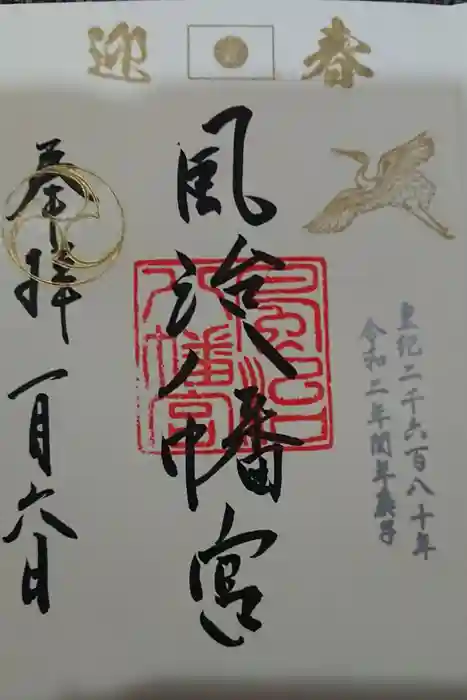 迎春
皇紀二千六百八十年
令和二年閏年庚子
風治八幡宮
風治八幡宮
奉拝 一月六日